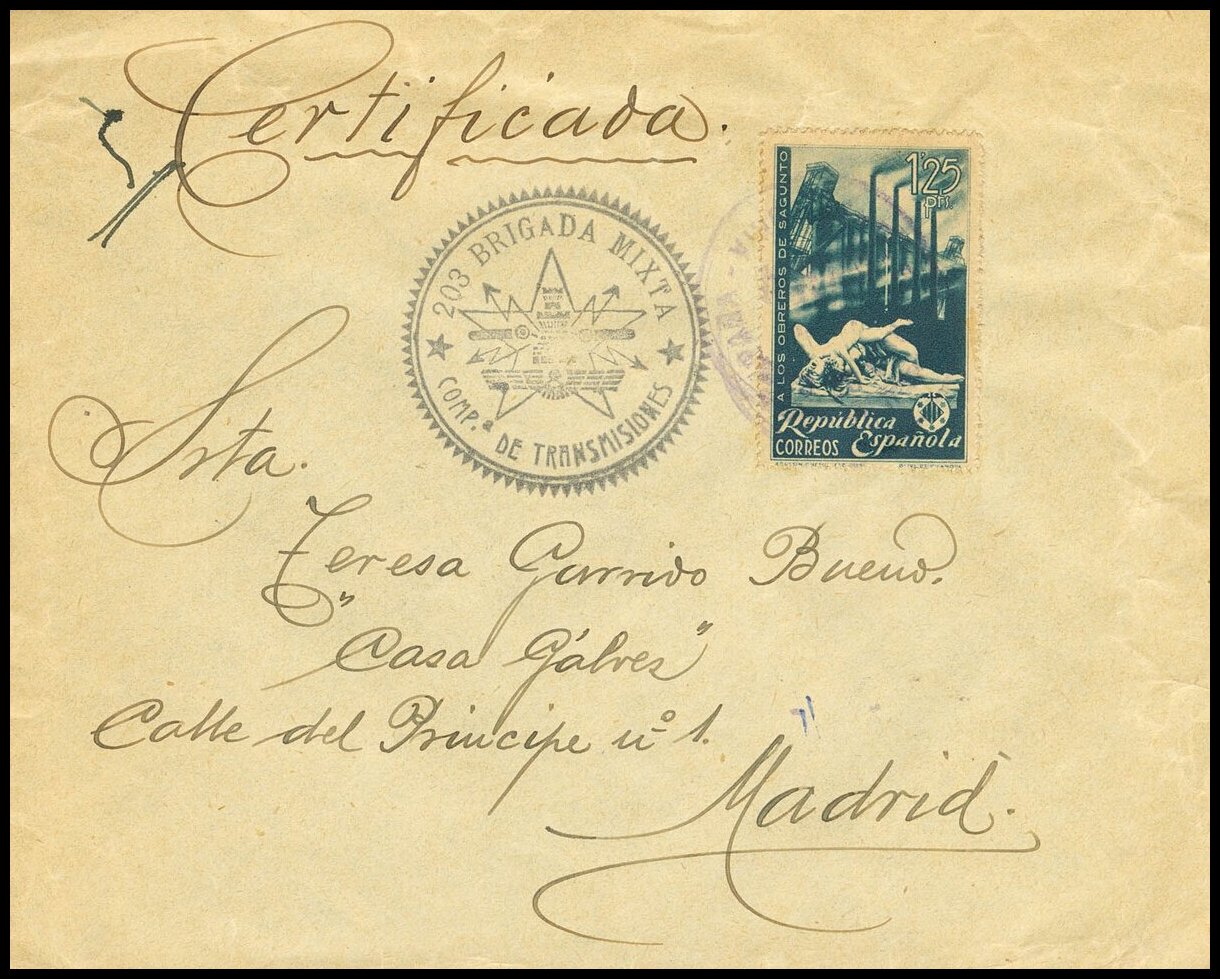 Certificada.
203 BRIGADA MIXTA
COMP.ª DE TRANSMISIONES
A LOS OBREROS DE SAGUNTO
1'25
pts
República
CORREOS Española
Srta.
Teresa Garrido Bueno.
"Casa Gálvez"
Calle del Principe nº 1.
Madrid.